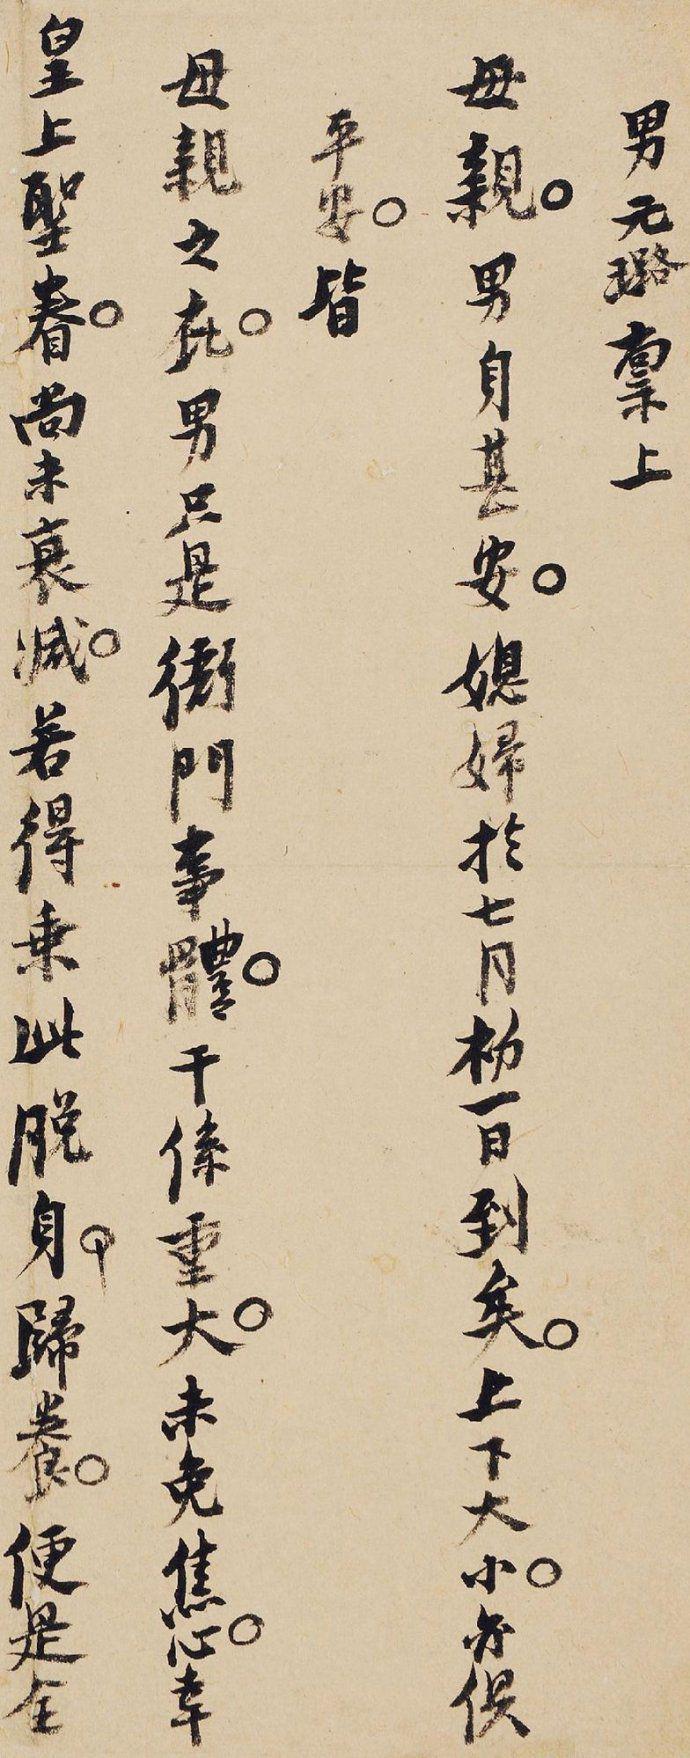 男元璐稟上
母親。男身甚安。媳婦於七月初一日到矣。上下大小。亦俱
平安。皆
母親之庇。男只是衙門事體。干係重大。未免焦心。幸
皇上聖眷。尚未衰減。若得乗此脫身。歸養。便是全